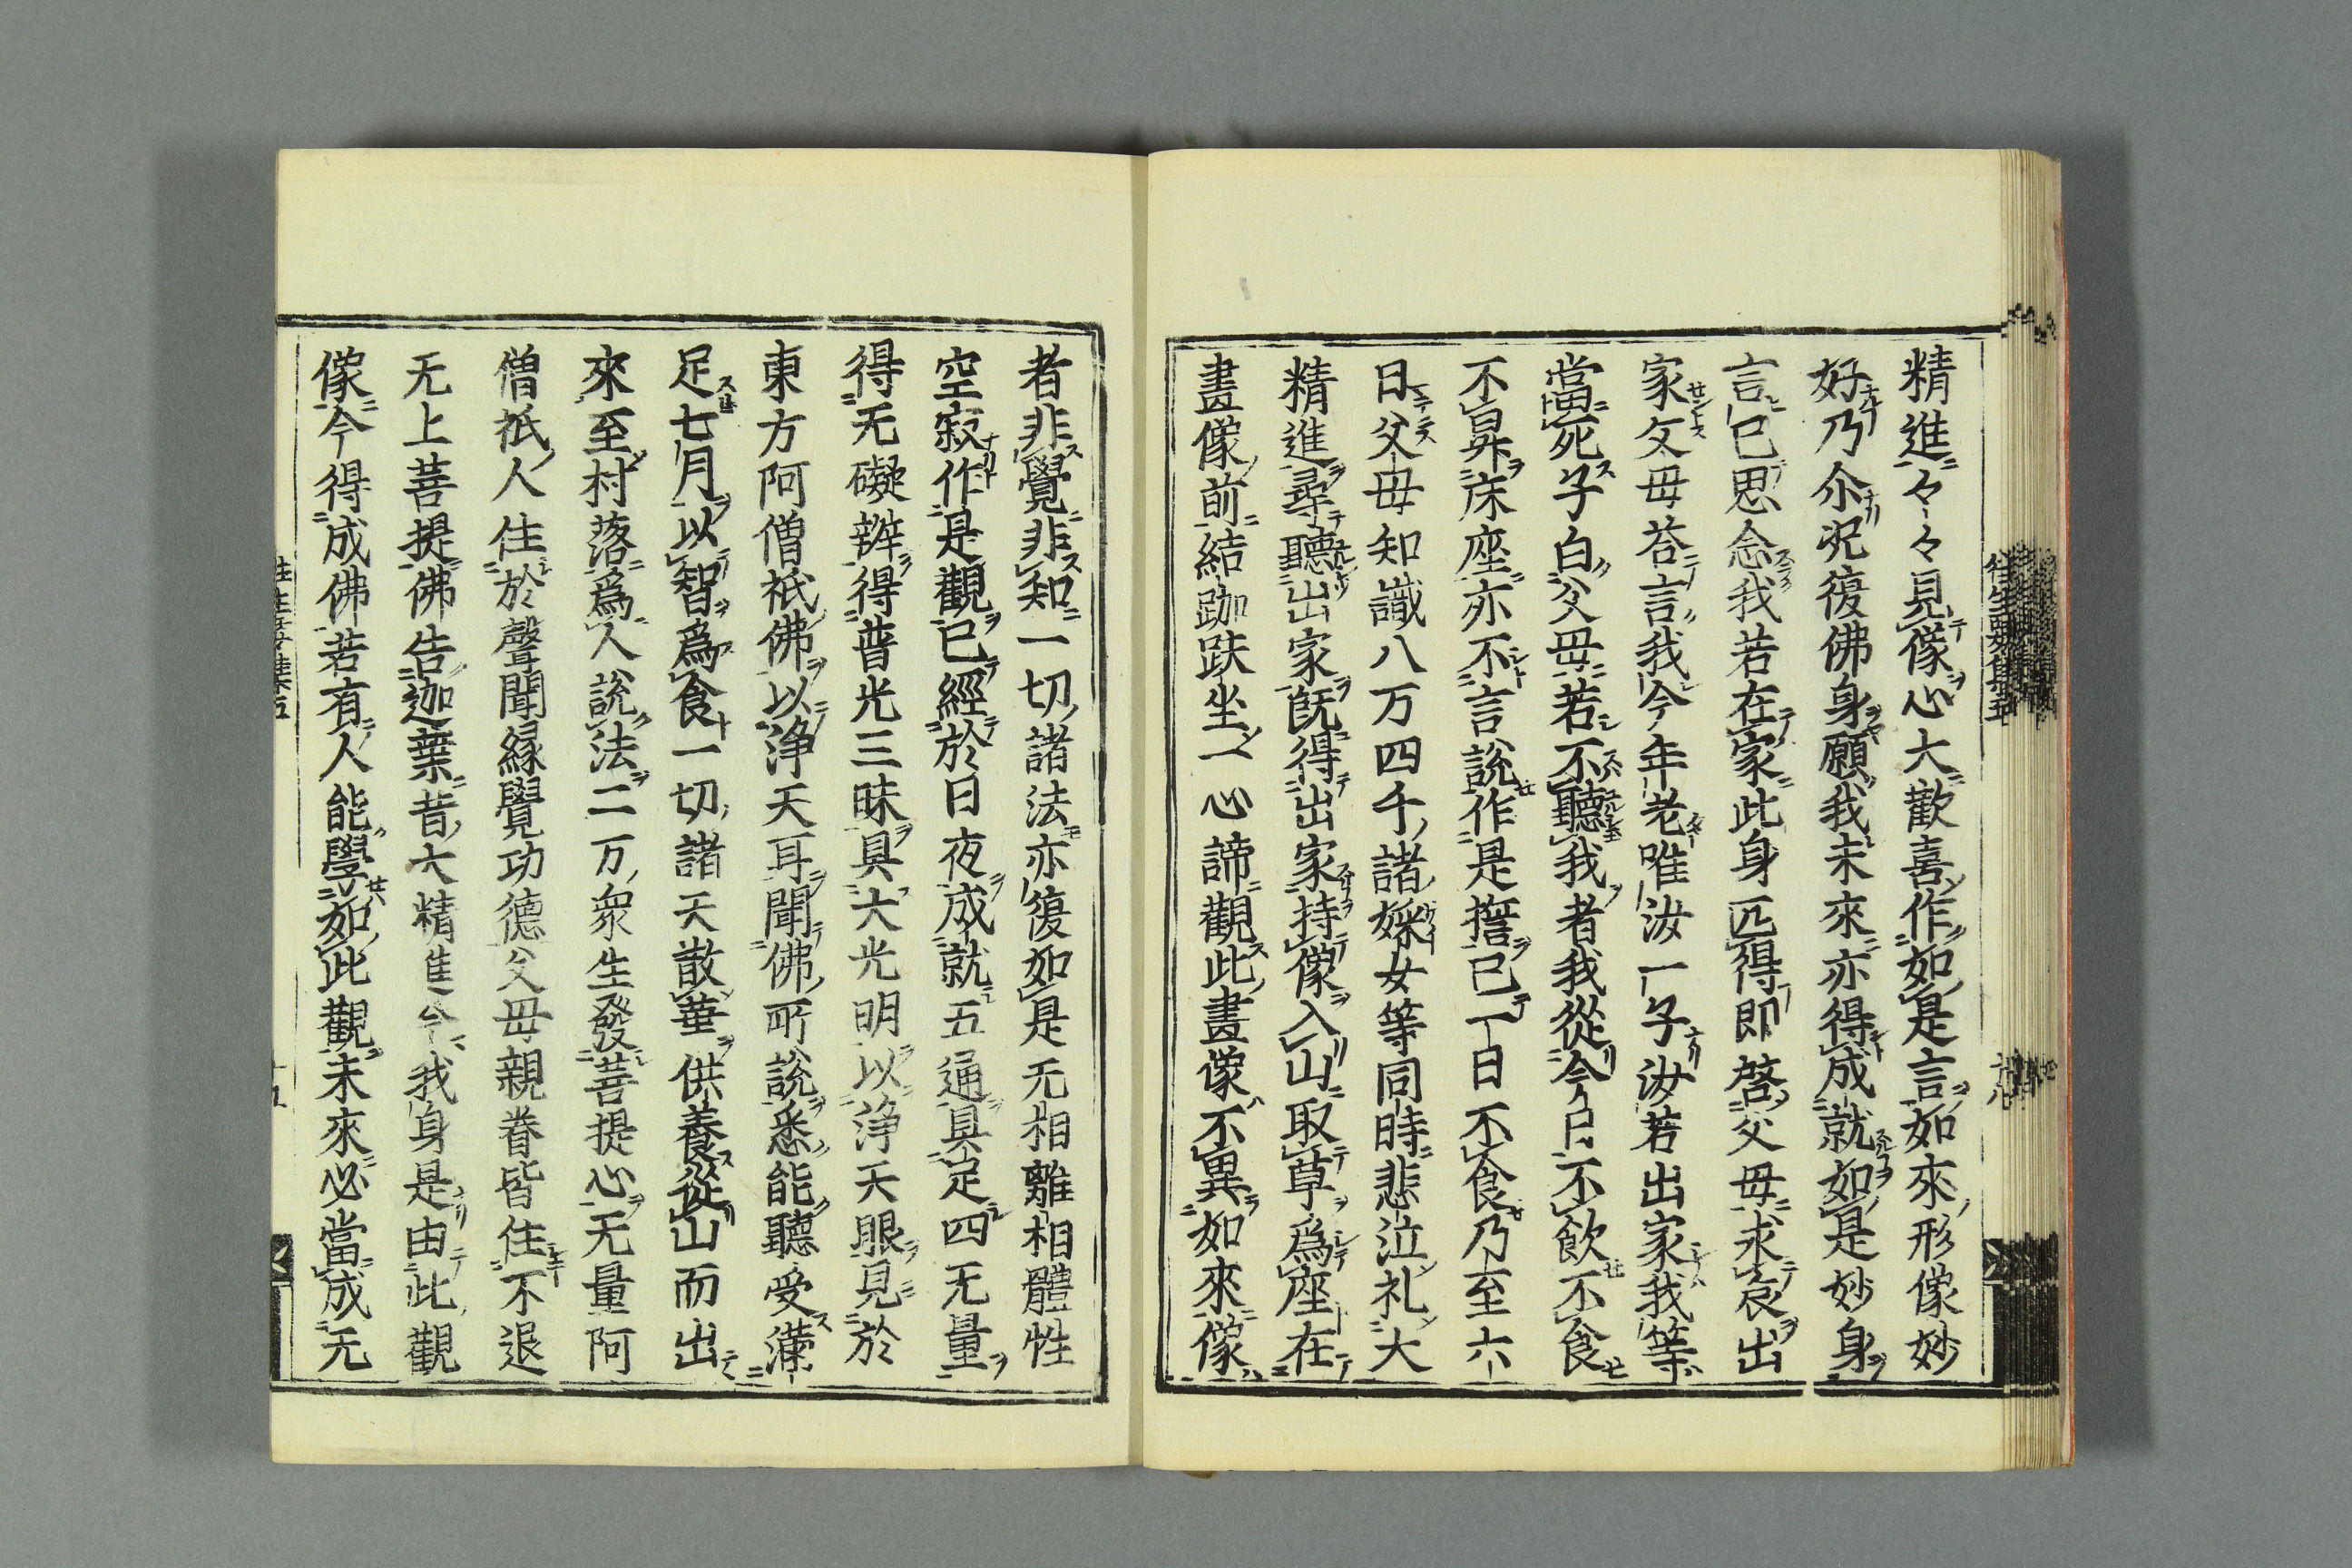 精進々々見像心大歡喜作如是言如來形像妙
好乃尒况復佛身願我未來亦得成就如是妙身
言已思念我若在家此身叵得即啓父母求哀出
家父母荅言我今年老唯汝一子汝若出家我等
當死子白父母若不聽我者我從今日不飲不食
不昇床座亦不言說作是誓已一日不食乃至六
日父母知識八万四千諸婇女等同時悲泣礼大
精進尋聽出家既得出家持像入山取草爲座在
畫像前結跏趺坐一心諦觀此畫像不異如來像
者非覺非知一切諸法亦復如是无相離相體性
空寂作是觀已經於日夜成就五通具足四无量
得无礙辯得普光三昧具大光明以淨天眼見於
東方阿僧祇佛以淨天耳聞佛所說悉能聽受滿
足七月以智爲食一切諸天散華供養從山而出
來至村落爲人說法二万衆生發菩提心无量阿
僧祇人住於聲聞緣覺功德父母親眷皆住不退
无上菩提佛告迦葉昔大精進今我身是由此觀
像今得成佛若有人能學如此觀未來必當成无
往生要集五